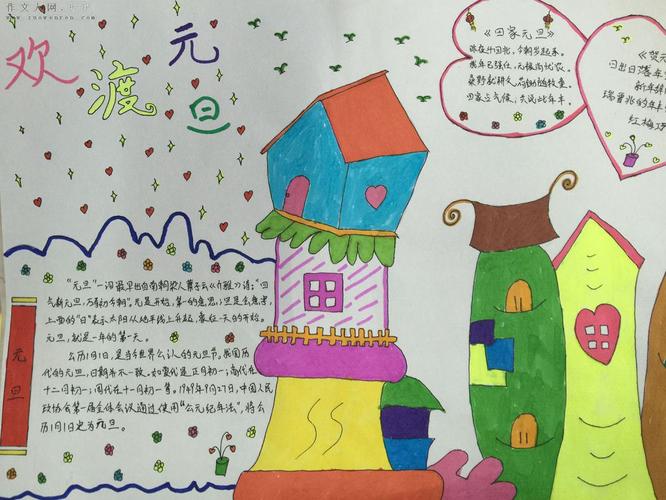 作文人网
欢渡元旦
《田家元旦》
昨夜斗回北，今朝岁起东。
我年已强仕，无禄尚忧农。
桑野就耕父，荷锄随牧童。
田家占气候，共说此年丰。
《贺元
日出日落年
新年
瑞雪兆的年
红梅巧
元旦
"元旦"一词最早出自南朝梁人萧子云《介雅》诗："四
气新元旦，万寿初今朝"。元是开始，第一的意思，旦是会意字，
上面的"日"表示太阳从地平线上升起，象征一天的开始。
元旦，就是一年的第一天。
公历1月1日，是当今世界公认的元旦节。我国历
代的元旦，日期并不一致。如夏代是正月初一；商代在
十二月初一；周代在十一月初一等。1949年9月27日，中国人民
政协会第一届全体会议通过使用"公元纪年法"，将公
历1月1日定为元旦。